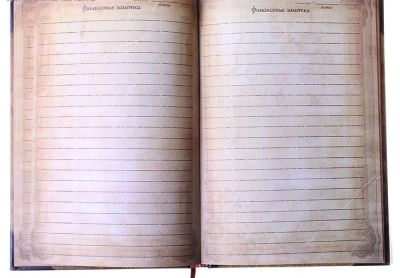 Финансовые заметки
дата
Финансовые заметки
дата